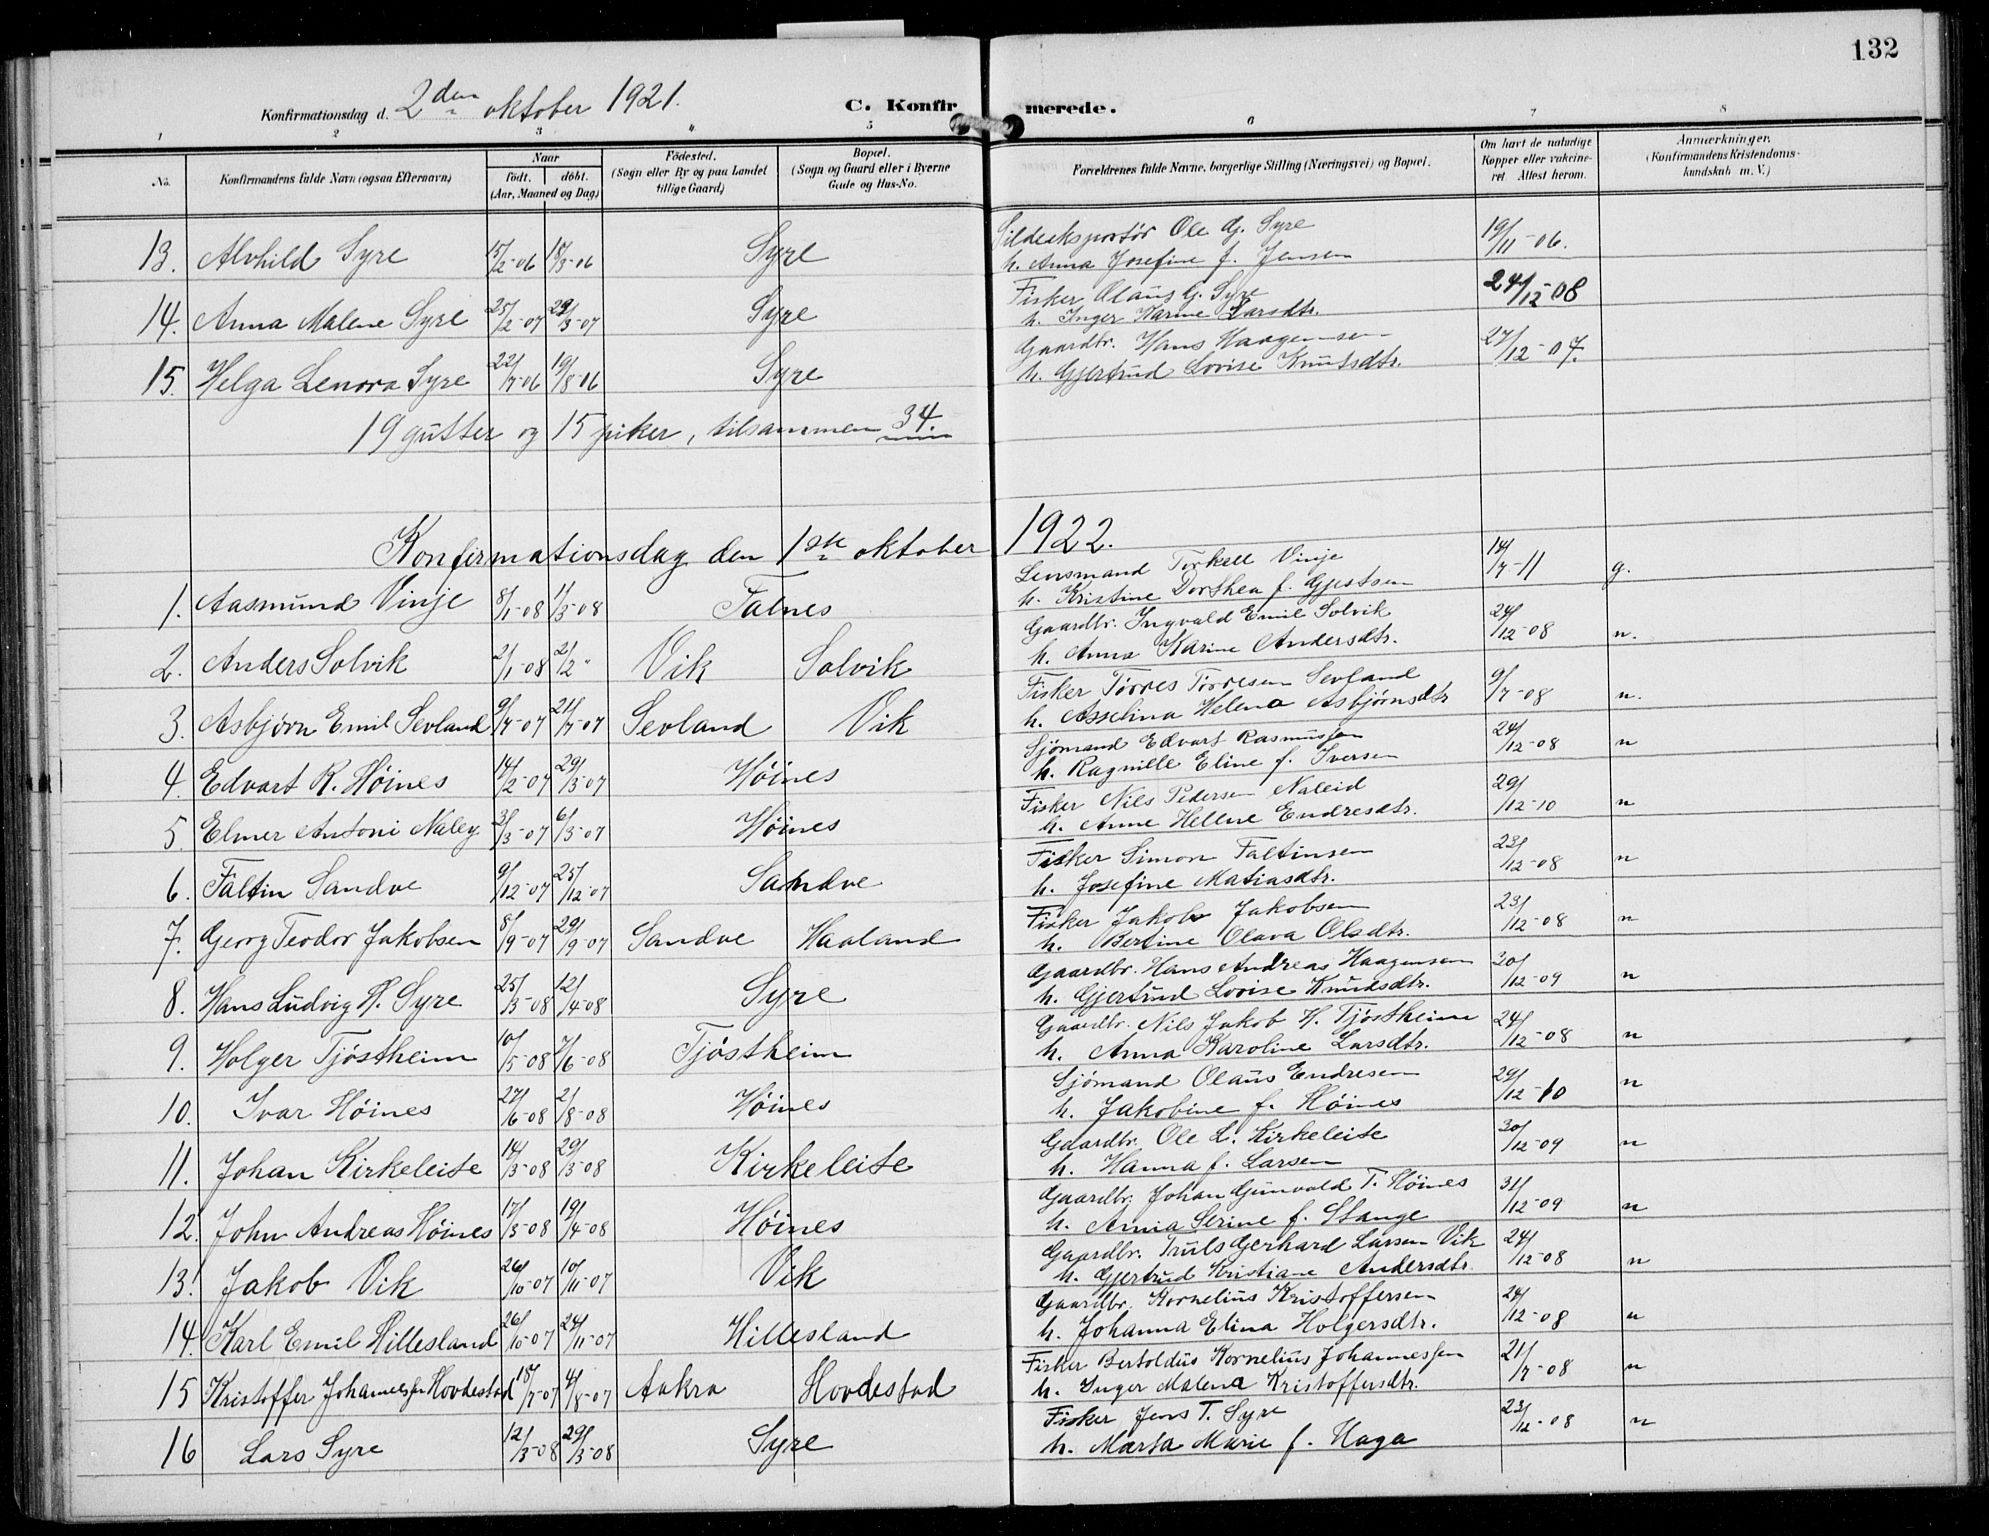 132
Konfirmationsdag d. 2den oktober 1921. C. Konfirmerede.
1 2 3 4 5 6 7 8
No. Konfirmandens fulde Navn (ogsaa Efternavn) Naar født. døbt. (Aar, Maaned og Dag) Fødested. (Sogn eller By og paa Landet tillige Gaard) Bopæl. (Sogn og Gaard eller i Byerne Gade og Hus-No. Forældrenes fulde Navne, borgerlige Stilling (Næringsvei) og Bopæl. Om havt de naturlige Kopper eller vakcineret. Attest herom. Anmærkninger. (Konfirmandens Kristendomskundskab m. V.)
13. Alvhild Syre 15/2-06 18/3-06 Syre Sildeeksportør Ole G. Syre 19/11-06.
h. Anna Josefine f. Jensen
14. Anna Malene Syre 25/2-07 29/3-07 Syre Fisker Olaus G. Syre 24/12-08
h. Inger Karine Larsdtr.
15. Helga Lenora Syre 22/7-06 19/8-06 Syre Gaardbr. Hans Haagensen 27/12-07.
h. Gjertrud Lovise Knutsdtr.
19 gutter og 15 piker, tilsammen 34.
Konfirmationsdag den 1ste oktober 1922.
1. Aasmund Vinje 8/1-08 1/3-08 Falnes Lensmand Torkell Vinje 14/7-11 g.
h. Kristine Dorthea f. Gjestsen
2. Anders Solvik 2/1-08 2/2 " Vik Solvik Gaardbr. Ingvald Emil Solvik 24/12-08 n.
h. Anna Karine Andersdtr.
3. Asbjørn Emil Sevland 9/7-07 21/7-07 Sevland Vik Fisker Torres Torresen Sevland 9/7-08 n.
h. Asselina Helena Asbjørnsdtr
4. Edvart R. Høines 14/2-07 29/3-07 Høines Sjømand Edvart Rasmussen 24/12-08 n
h. Ragnille Eline f. Iversen
5. Elmer Antoni Naley 3/3-07 6/3-07 Høines Fisker Nils Pedersen Naleid 29/12-10 n
h. Anne Hellne Endresdtr.
6. Faltin Sandve 9/12-07 25/12-07 Sandve Fisker Simon Faltinsen 23/12-08 n
h. Josefine Matiasdtr.
7. Georg Teodor Jakobsen 8/9-07 29/9-07 Sandve Haaland Fisker Jakob Jakobsen 23/12-08 n
h. Bertine Olava Olsdtr.
8. Hans Ludvig H. Syre 25/3-08 12/4-08 Syre Gaardbr. Hans Andreas Haagensen 30/12-09 n
h. Gjertrud Lovise Knudsdtr.
9. Holger Tjøstheim 10/5-08 7/6-08 Tjøstheim Gaardbr. Nils Jakob H. Tjøstheim 24/12-08 n
h. Anna Karoline Larsdtr.
10. Ivar Høines 27/6-08 2/8-08 Høines Sjømand Olaus Endresen 29/12-10 n
h. Jakobine f. Høines
11. Johan Kirkeleite 14/3-08 29/3-08 Kirkeleite Gaardbr. Ole L. Kirkeleite 30/12-09 n
h. Hanna f. Larsen
12. John Andreas Høines 17/3-08 19/4-08 Høines Gaardbr. Johan Gunvald T. Høines 31/12-09 n
h. Anna Serine f. Stange
13. Jakob Vik 26/10-07 10/11-07 Vik Gaardbr. Truls Gerhard Larsen Vik 24/12-08 n
h. Gjertrud Kristiane Andersdtr.
14. Karl Emil Hillesland 26/10-07 24/11-07 Hillesland Gaardbr. Kornelius Kristoffersen 24/12-08 n
h. Johanna Elina Holgersdtr.
15 Kristoffer Johannessen Hovdestad 18/7-07 4/8-07 Aakra Hovdestad Fisker Bertoldus Kornelius Johannessen 21/7-08 n
h. Inger Malena Kristoffersdtr.
16 Lars Syre 12/3-08 29/3-08 Syre Fisker Jens T. Syre 23/12-08 n
h. Marta Marie f. Haga